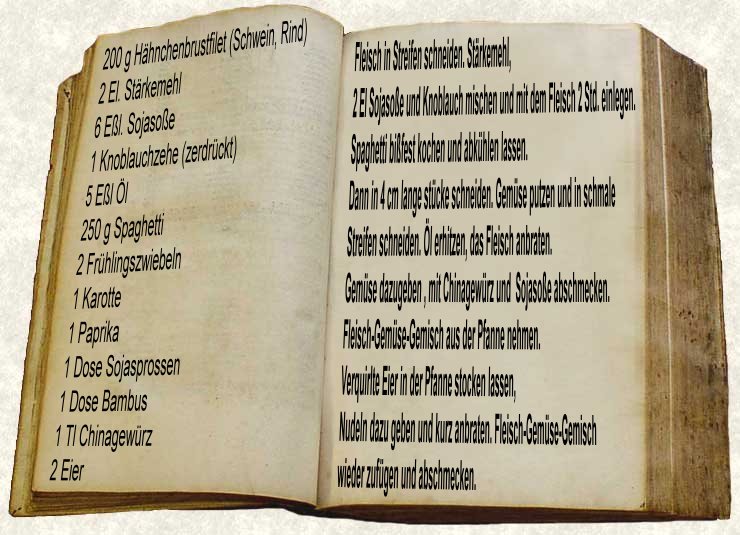 200 g Hähnchenbrustfilet (Schwein, Rind)
2 El. Stärkemehl
6 Eßl. Sojasoße
1 Knoblauchzehe (zerdrückt)
5 Eßl Öl
250 g Spaghetti
2 Frühlingszwiebeln
1 Karotte
1 Paprika
1 Dose Sojasprossen
1 Dose Bambus
1 Tl Chinagewürz
2 Eier
Fleisch in Streifen schneiden. Stärkemehl,
2 El Sojasoße und Knoblauch mischen und mit dem Fleisch 2 Std. einlegen.
Spaghetti bißfest kochen und abkühlen lassen.
Dann in 4 cm lange stücke schneiden. Gemüse putzen und in schmale
Streifen schneiden. Öl erhitzen, das Fleisch anbraten.
Gemüse dazugeben , mit Chinagewürz und Sojasoße abschmecken.
Fleisch-Gemüse-Gemisch aus der Pfanne nehmen.
Verquirlte Eier in der Pfanne stocken lassen,
Nudeln dazu geben und kurz anbraten. Fleisch-Gemüse-Gemisch
wieder zufügen und abschmecken.